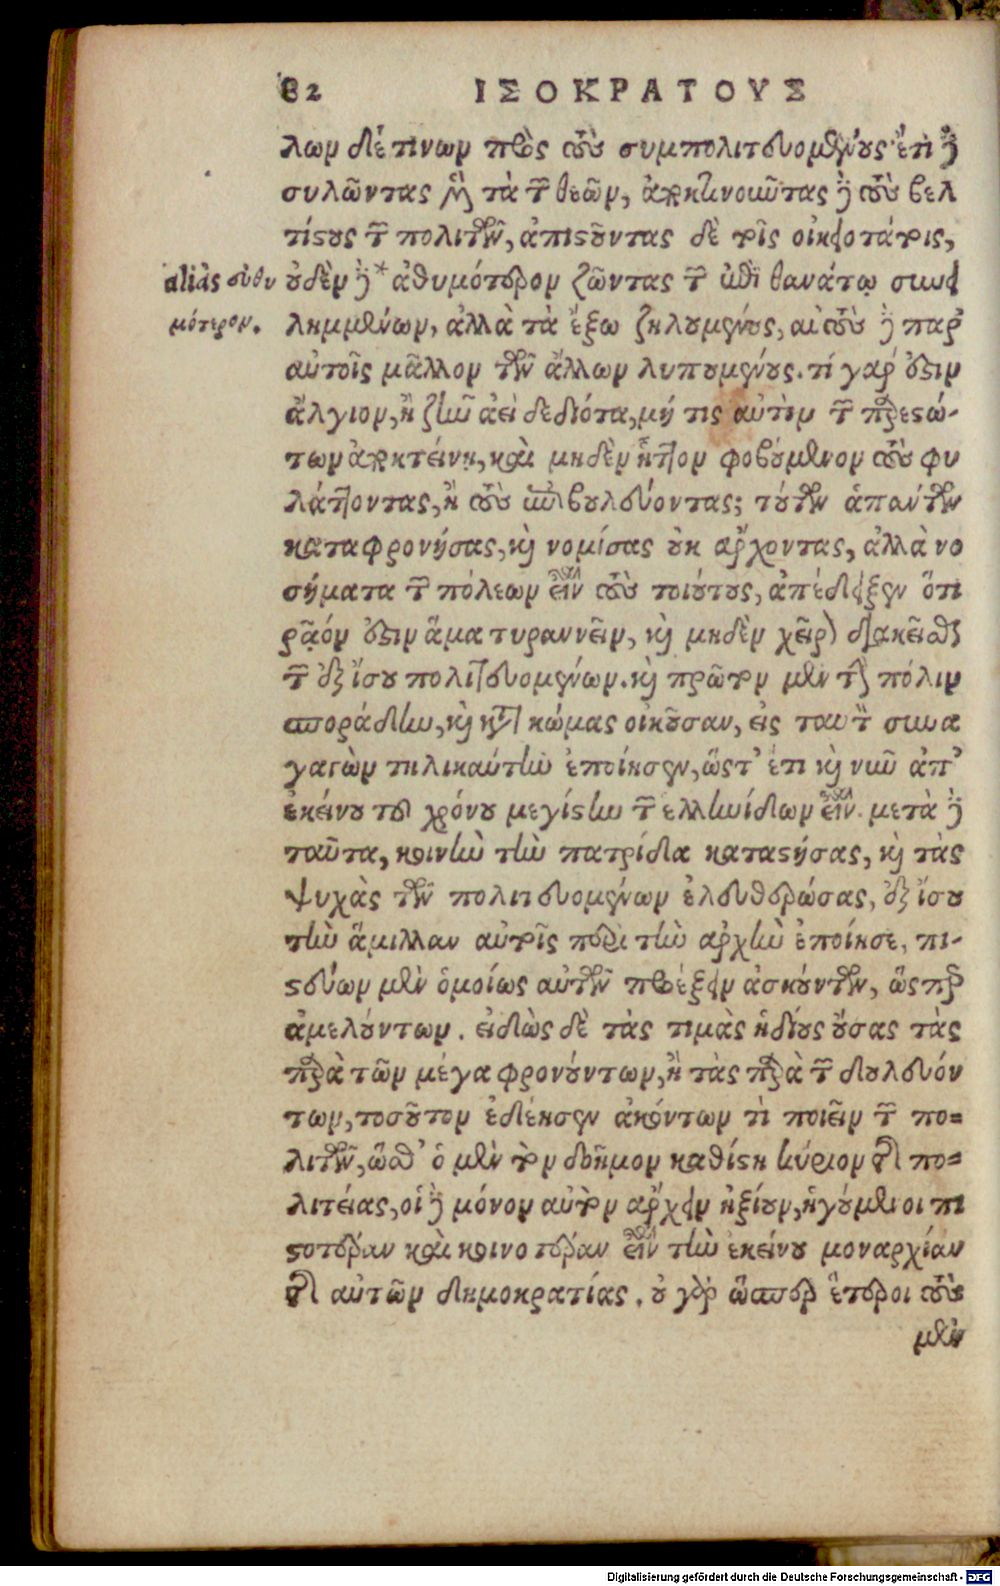 82 ΙΣΟΚΡΑΤΟΥΣ
λων δέ τινων πρὸς τοὺς συμπολιτευομένους· ἔτι δὲ
συλῶντας μὲν τὰ τῶν θεῶν, ἀποκτείνοντας δὲ τοὺς βελ
τίστους τῶν πολιτῶν, ἀπιστοῦντας δὲ τοῖς οἰκειοτάτοις,
οὐδὲν δὲ * ἀθυμότερον ζῶντας τῶν ἐπὶ θανάτῳ συνει
alias εὐθυ
μότερον.
λημμένων, ἀλλὰ τὰ ἔξω ζηλουμένους, αὐτοὺς δὲ παρ'
αὐτοῖς μᾶλλον τῶν ἄλλων λυπουμένους. τί γάρ ἐστιν
ἄλγιον, ἢ ζῆν ἀεὶ δεδιότα, μή τις αὐτὸν τῶν παρεστώ-
των ἀποκτείνῃ, καὶ μηδὲν ἧττον φοβούμενον τοὺς φυ
λάττοντας, ἢ τοὺς ἐπιβουλεύοντας; τούτων ἁπάντων
καταφρονήσας, καὶ νομίσας οὐκ ἄρχοντας, ἀλλὰ νο
σήματα τῶν πόλεων εἶναι τοὺς τοιούτους, ἀπέδειξεν ὅτι
ρᾷόν ἐστιν ἅμα τυραννεῖν, καὶ μηδὲν χεῖρον διακεῖσθαι
τῶν ἐξ ἴσου πολιτευομένων. καὶ πρῶτον μὲν τὴν πόλιν
σποράδην, καὶ κατὰ κώμας οἰκοῦσαν, εἰς ταυτὸν συνα
γαγὼν τηλικαύτην ἐποίησεν, ὥστ' ἔτι καὶ νῦν ἀπ'
ἐκείνου τοῦ χρόνου μεγίστην τῶν ελληνίδων εἶναι. μετὰ δὲ
ταῦτα, κοινὴν τὴν πατρίδα καταστήσας, καὶ τὰς
ψυχὰς τῶν πολιτευομένων ἐλευθερώσας, ἐξ ἴσου
τὴν ἅμιλλαν αὐτοῖς περὶ τὴν ἀρχὴν ἐποίησε, πι-
στεύων μὲν ὁμοίως αὐτῶν προέξειν ἀσκούντων, ὥσπερ
ἀμελούντων. εἰδὼς δὲ τὰς τιμὰς ἡδίους οὔσας τὰς
παρὰ τῶν μέγα φρονούντων, ἢ τὰς παρὰ τῶν δουλευόν
των, τοσοῦτον ἐδέησεν ἀκόντων τὶ ποιεῖν τῶν πο=
λιτῶν, ὥσθ' ὁ μὲν τὸν δῆμον καθίστη κύριον τῆς πο=
λιτείας, οἱ δὲ μόνον αὐτὸν ἄρχειν ἠξίουν, ἡγούμενοι πι
στοτέραν καὶ κοινοτέραν εἶναι τὴν ἐκείνου μοναρχίαν
τῆς αὐτῶν δημοκρατίας. οὐ γὰρ ὥσπερ ἕτεροι τοὺς
μὲν
Digitalisierung gefördert durch die Deutsche Forschungsgemeinschaft - DFG